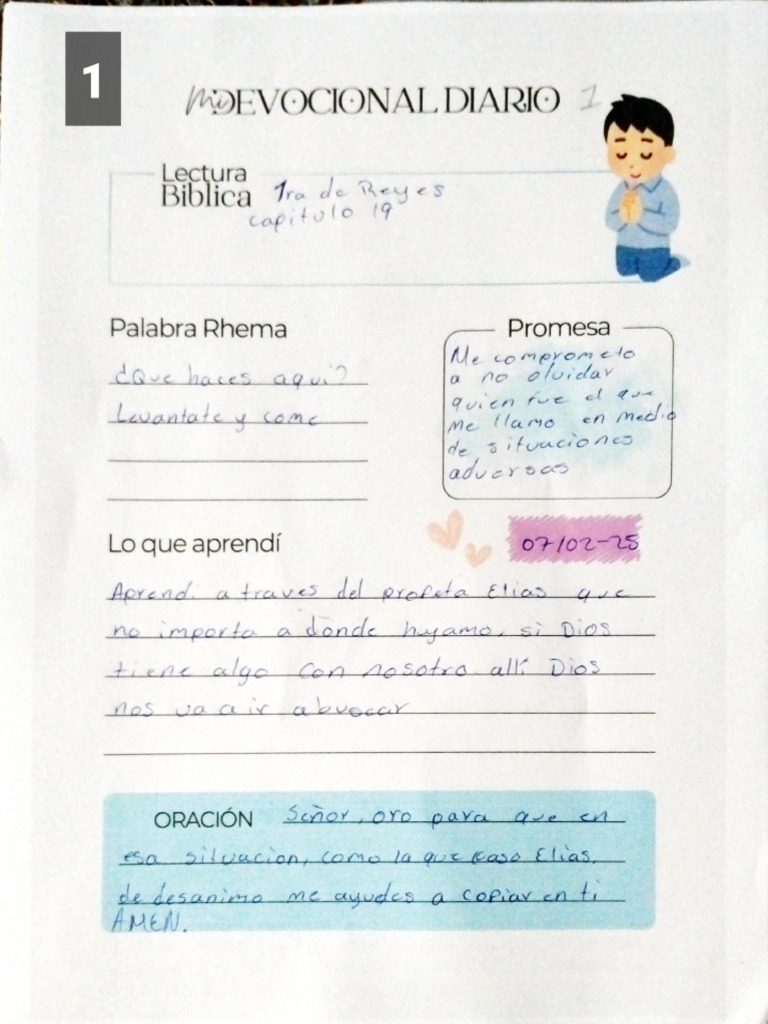 1
Mi DEVOCIONAL DIARIO 1
Lectura
Bíblica 1ra de Reyes
capitulo 19
Palabra Rhema
¿Que haces aqui?
Levantate y come
Promesa
Me comprometo
a no olvidar
quien fue el que
me llamo en medio
de situaciones
adversas
Lo que aprendí
07/02-25
Aprendi a traves del profeta Elias que
no importa a donde huyamo, si Dios
tiene algo con nosotro allí Dios
nos va a ir abuscar
ORACIÓN Señor, oro para que en
esa situacion, como la que paso Elias,
de desanimo me ayudes a copiar en ti
AMEN.